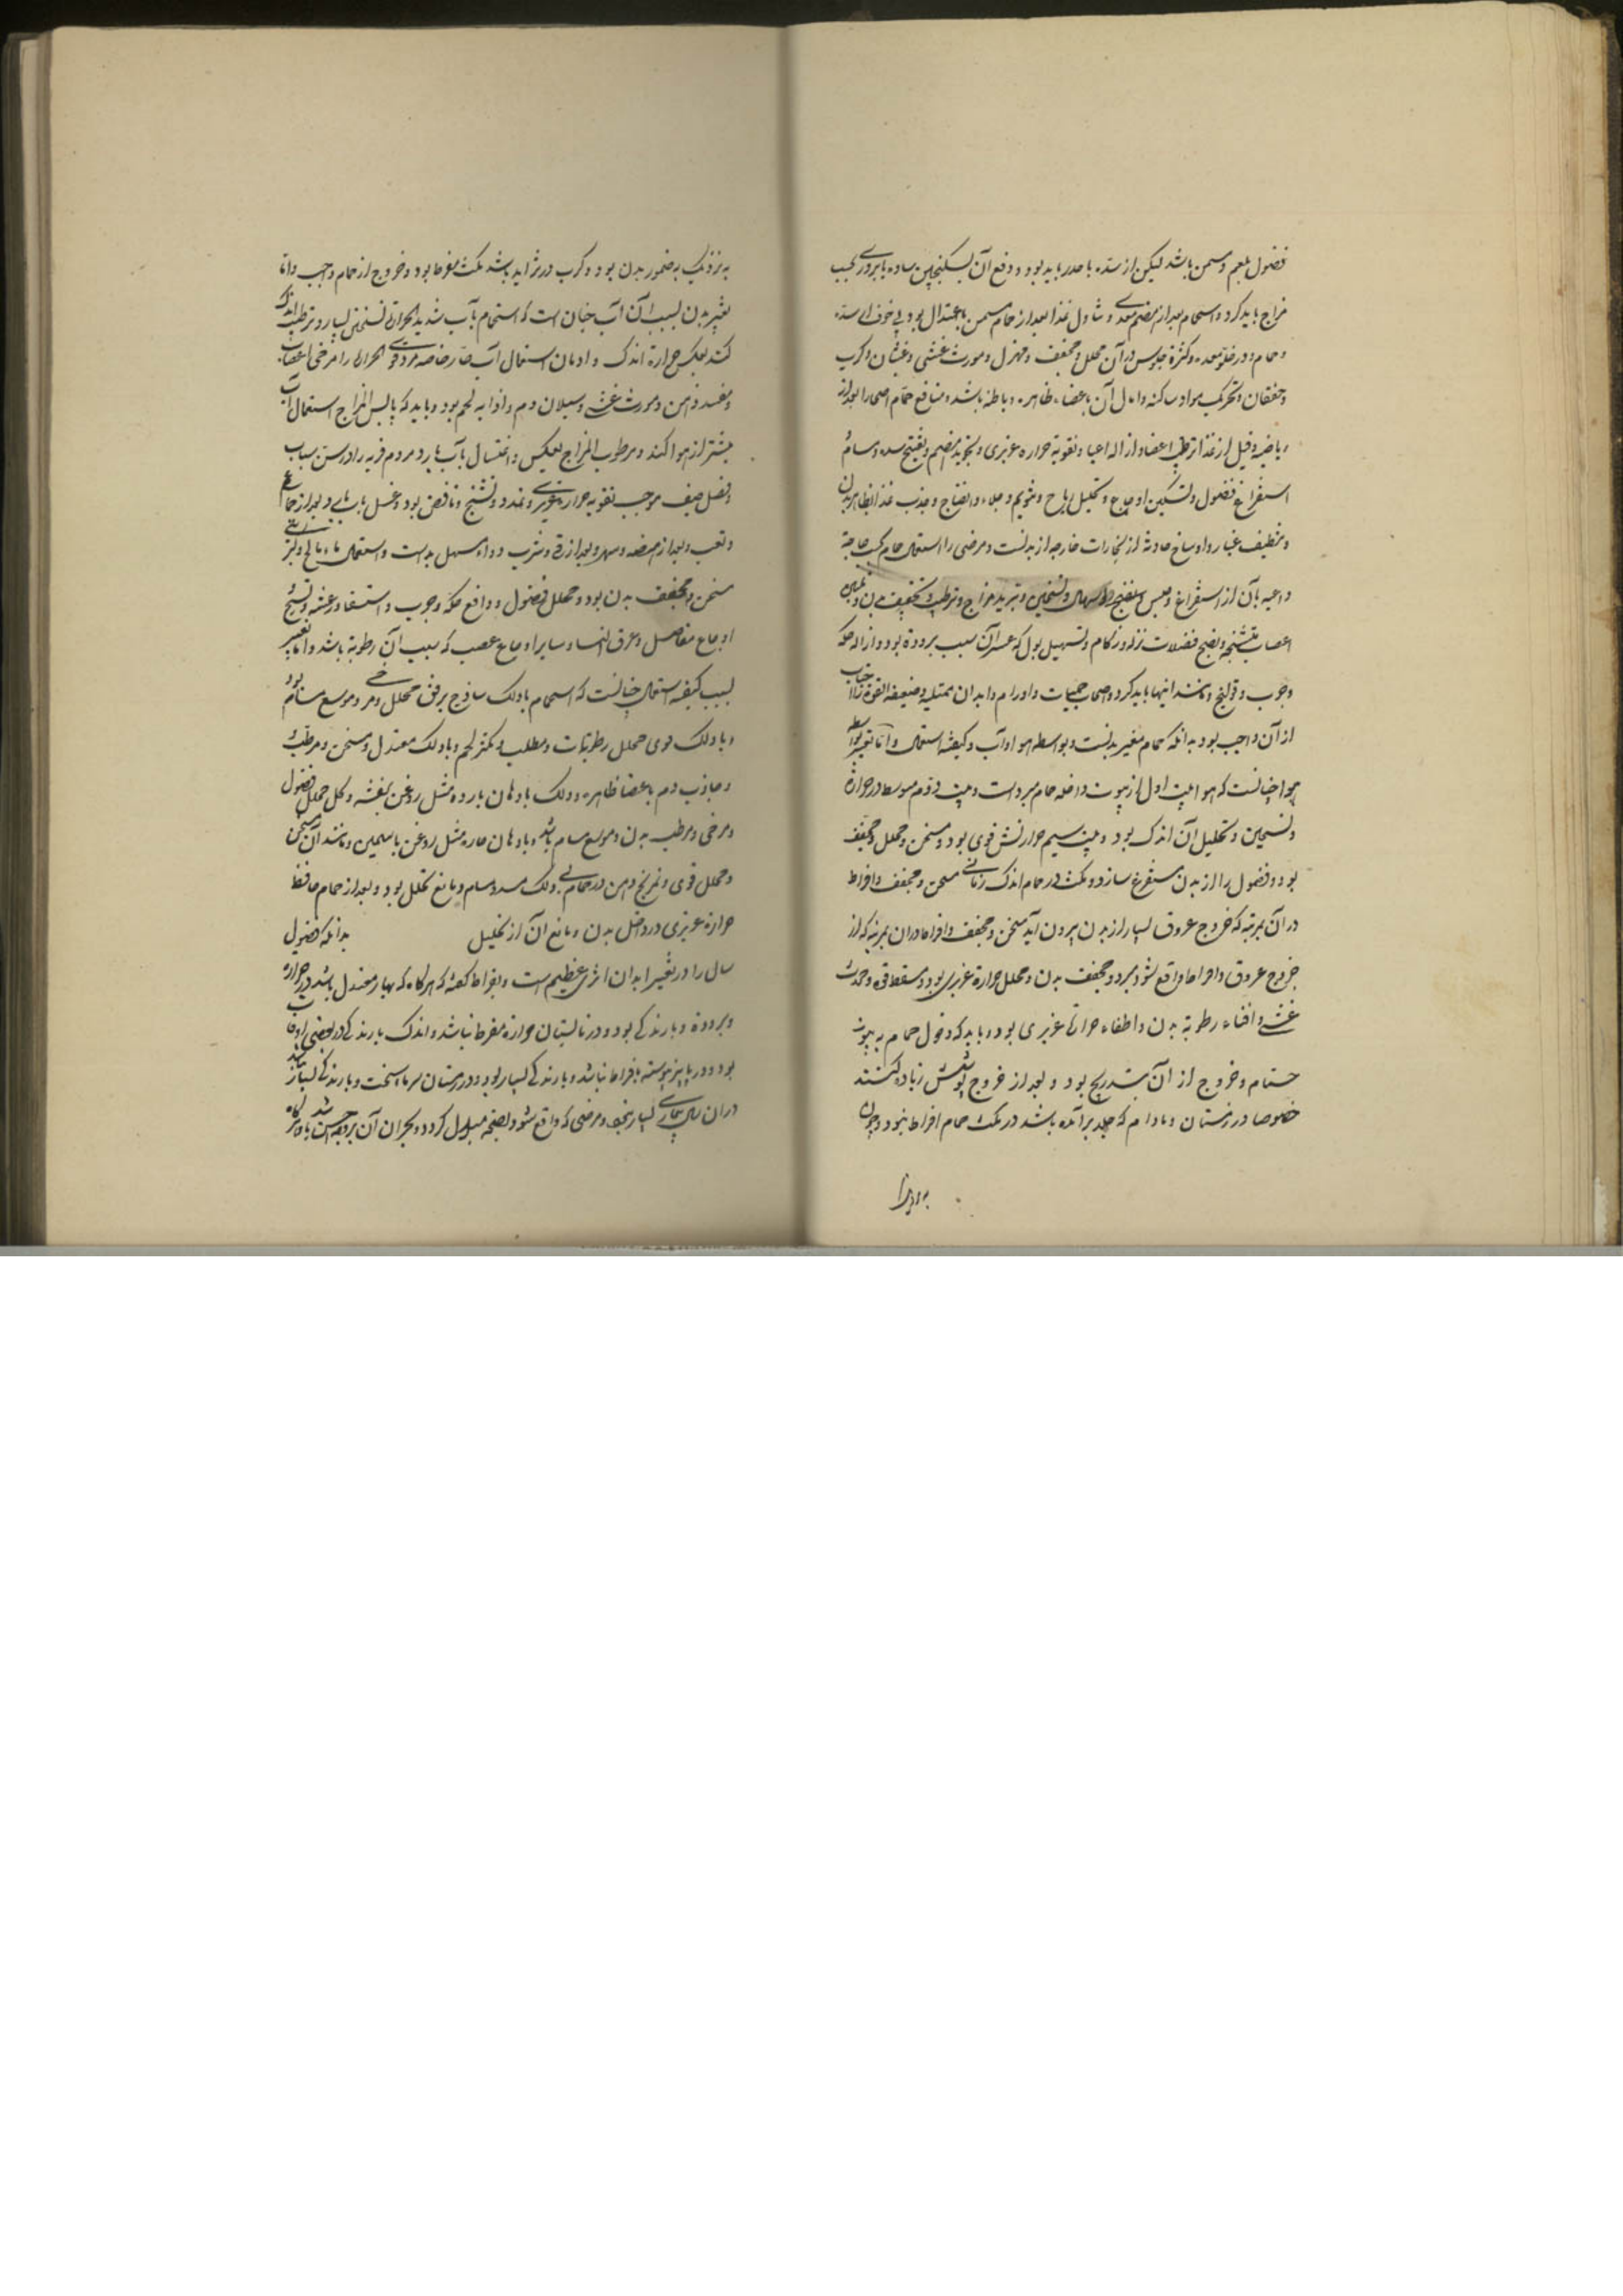 فضول بلغم و مسمن باشد لیکن از سده با حذر باید بود و دفع آن بسکنجبین ساده یا بزوری بحسب
مزاج باید کرد و استحمام بعد از هضم معدی و تناول غذا بعد از حمام مسمن باعتدال بود بی خوف از سده
و حمام در خلو معده و کثرة جلوس در آن محلل و مجفف و مهزل و مورث غشی و غثیان و کرب
و خفقان و تحریک مواد ساکنه و اسال آن باعضاء ظاهره و باطنه باشد و منافع حمام اصحا را بعد از
ریاضة و قبل از غذا ترطیب اعضا و ازاله اعیا و تقویة حراره غریزی و تجوید هضم و تفتیح سده و مسام
استفراغ فضول و تسکین اوجاع و تحلیل ریاح و تنویم و جلاء و انضاج و جذب غذا بظاهر بدن
و تنظیف غبار و اوساخ حادثه از بخارات خارجه از بدنست و مرضی را استعمال حمام بحسب حاجة
داعیه بآن از استفراغ و حبس و نضج و اسهال و تسخین و تبرید مزاج و ترطیب و تجفیف بدن و تلیین
اعصاب متشنجه و نضج فضلات نزله و زکام و تسهیل بول که عسر آن بسبب بروده بود و ازاله حکه
و جرب و قولنج و مانند اینها باید کرد و اصحاب حمیات و اورام و ابدان ممتلیه و ضعیفه القوة را اجتناب
از آن واجب بود بدانکه حمام مغیر بدنست و بواسطه هوا و آب و کیفیة استعمال و اما تغییر بواسطه
هوا چنانست که هواء بیت اول از بیوت داخله حمام مبرد است و بیت دوم متوسط در حرارة
و تسخین و تحلیل آن اندک بود و بیت سیم حرارتش قوی بود و مسخن و محلل و مجفف
بود و فضول را از بدن مستفرغ سازد و مکث در حمام اندک زمانی مسخن و مجفف و افراط
در آن بمرتبه که خروج عروق بسیار از بدن بیرون آید مسخن و مجفف و افراط در آن بمرتبه که از
خروج عروق و افراط واقع شود مبرد و مجفف بدن و محلل حرارة غریزی بود و مسقط قوه و محدث
غشی و افناء رطوبة بدن و اطفاء حرارة غریزی بود و باید که دخول حمام به بیوت
حمام و خروج از آن بتدریج بود و بعد از خروج پوشش زیاده کنند
خصوصا در زمستان و مادام که جلد برآمده باشد در مکث حمام افراط نبود و چون
به نزدیک بضمور بدن بود و کرب در تزاید باشد مکث مفرط بود و خروج از حمام واجب و اما
تغییر بدن بسبب آن آب چنان است که استحمام بآب شدید الحرارة تسخین بسیار و ترطیب اندک
کند بعکس حرارة اندک و ادمان استعمال آب حار خاصه مرد قوی الحرارة را مرخی اعصاب
و مفسد ذهن و مورث غشی و سیلان دم و اذابه لحم بود و باید که یابس المزاج استعمال آب
بیشتر از هوا کند و مرطوب المزاج بعکس و اغتسال بآب بارد مردم فربه را در سن شباب
و فصل صیف موجب تقویه حرارة غریزی و تمدد و تشنج و نافض بود و غسل بآب بارد بعد از جماع
و تعب و بعد از هیضه و سهر و بعد از قی و شرب دواء مسهل بدست و استعمال ماء مالح و کبریتی
مسخن و مجفف بدن بود و محلل فضول و دافع حکه و جرب و استسقا و رعشه و تشنج
اوجاع مفاصل و عرق النسا و سایر اوجاع عصب که سبب آن رطوبة باشد و اما تغییر
بسبب کیفیة استعمال چنانست که استحمام بادلک ساذج برفق محلل و مرخی و موسع مسام بود
و بادلک قوی محلل رطوبات و مصلب و مکثر لحم و بادلک معتدل و مسخن و مرطب
و جاذب دم باعضا ظاهره و دلک بادهان بارده مثل روغن بنفشه و کل محلل فضول
و مرخی و مرطب بدن و موسع مسام باشد و بادهان حاره مثل روغن یاسمین و مانند آن مسخن
و محلل قوی و تمریخ دهن در حمام بی دلک مسدد مسام و مانع تحلل بود و بعد از حمام حافظ
حرارة غریزی در داخل بدن و مانع آن از تحلیل بدانکه فصول
سال را در تغییر ابدان اثری عظیم است و بقراط کفته که هر کاه که بهار معتدل باشد در حرارة
و برودة و بارندکی بود و در تابستان حرارة مفرط نباشد و اندک بارندکی در بعضی اوقات
بود و در پاییز پیوسته بافراط نباشد و بارندکی بسیار بود و در زمستان سرما سخت و بارندکی بسیار نباشد
در آن سال بیماری بسیار نیفتد و مرضی که واقع شود بصحة مبدل کردد و بحران آن بر وجه احسن باشد و هر کاه